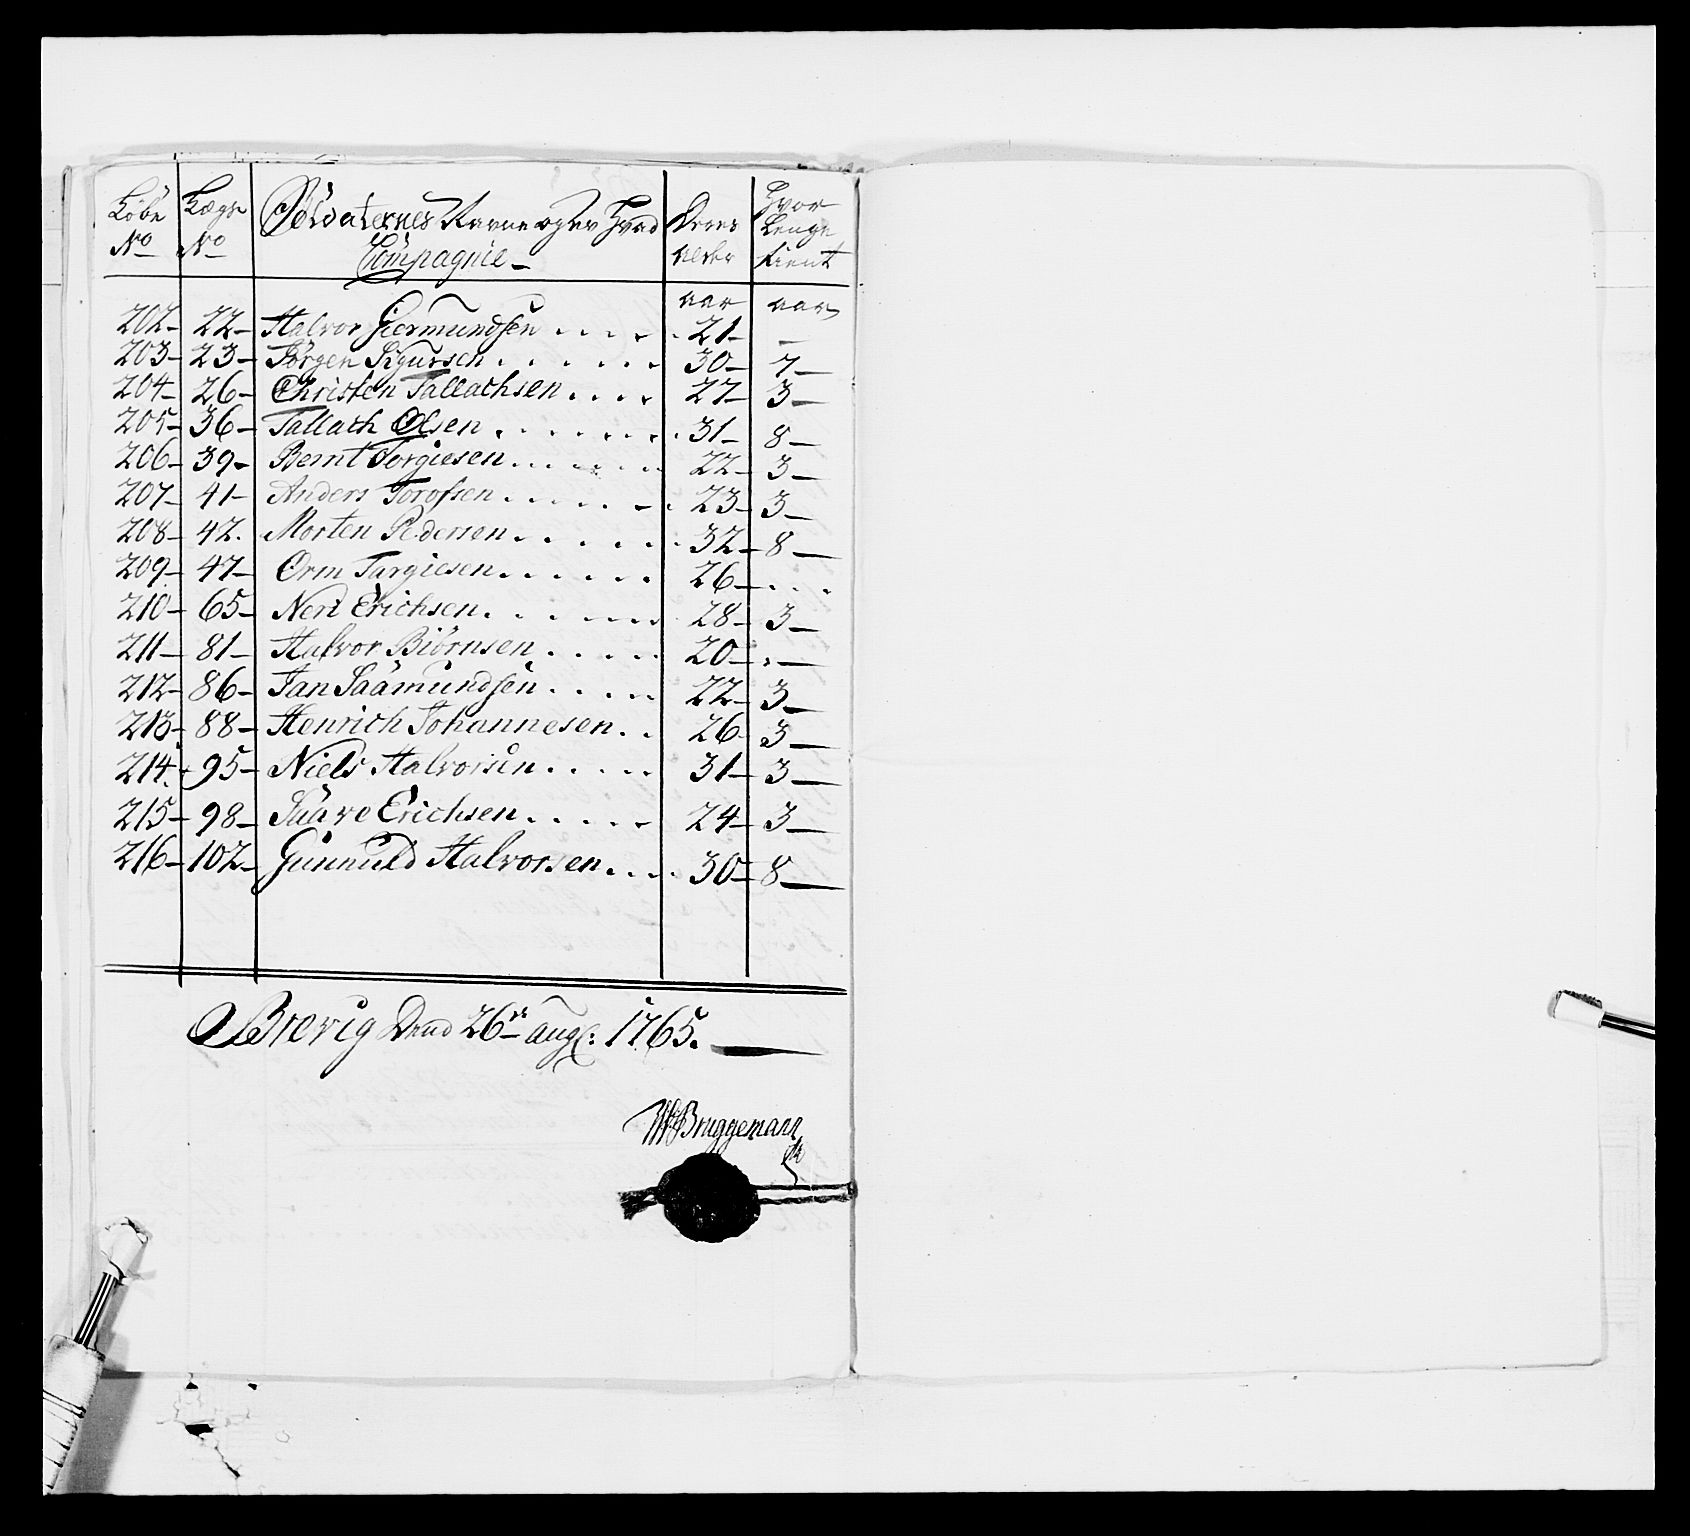 Løbe No Lægs No Soldaternes Navne og ved Hvad Compagnie Deres alder Hvor Lenge tient
aar aar
202 - 22 - Halvor Giermundsen . . . . . 21 - -
203 - 23 - Jørgen Sigursen . . . . . . 30 - 7 -
204 - 26 - Christen Tallachsen . . . . 27 - 3 -
205 - 36 - Tallach Olsen . . . . . . . 31 - 8 -
206 - 39 - Bernt Torgiesen . . . . . . 22 - 3 -
207 - 41 - Anders Torofsen . . . . . . 23 - 3 -
208 - 42. Morten Pedersen . . . . . . 32 - 8 -
209 - 47 - Orm Targiesen . . . . . . 26 - . . .
210 - 65 - Neri Erichsen . . . . . . 28 - 3 -
211 - 81 - Halvor Biörnsen . . . . . 20 - . -
212 - 86 - Jan Saamundsen . . . . . 22 - 3 -
213 - 88 - Henrich Johannesen . . 26 3 -
214 - 95 - Niels Halvorsen . . . . . 31 - 3 -
215 - 98 - Saave Erichsen . . . . . 24 - 3 -
216 - 102 - Gunnuld Halvorsen . . . . 30 - 8 -
Brevig Dend 26de aug: 1765.
Bruggemann